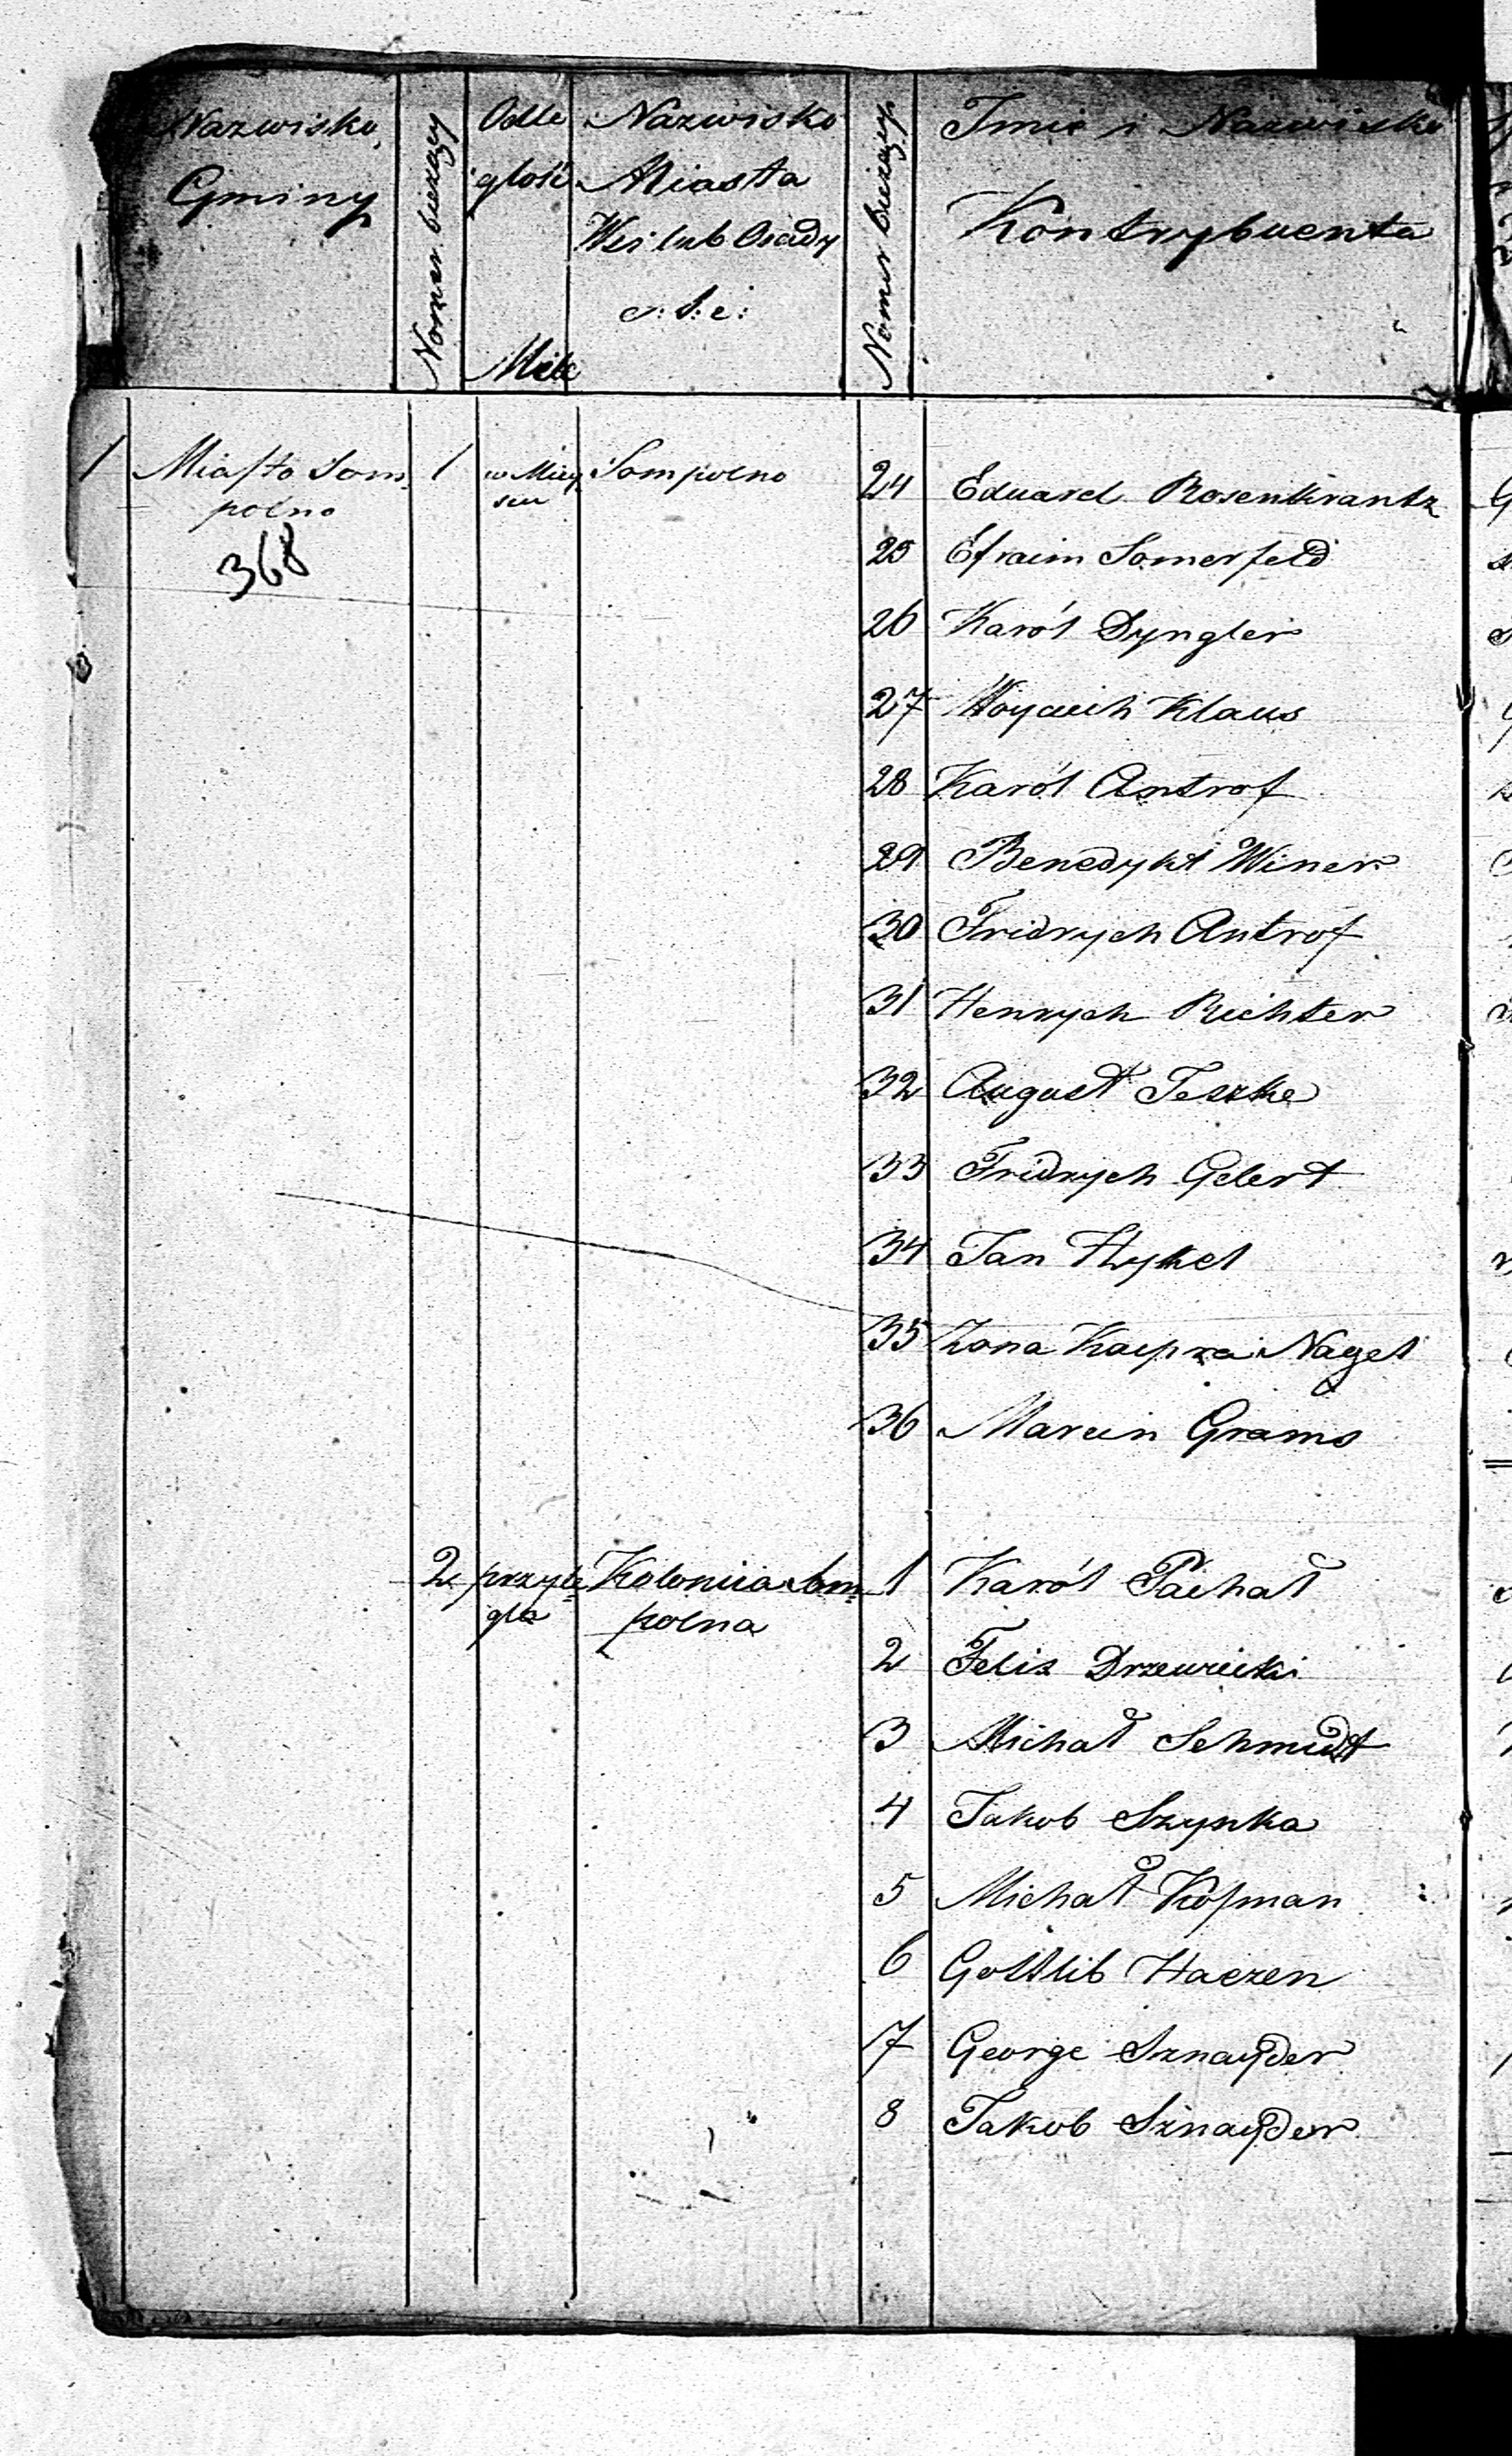 Nazwisko
Gminy
Numer bieżący
Odle
głość
Mile
Nazwisko
Miasta
Wsi lub Osady
e: t: c:
Numer bieżący
Imie i Nazwisko
Kontrybuenta
1 Miasto Som=
polno
368
1 w Miey
scu
Sompolno
24 Eduard Rosenkrantz
25 Efraim Somerfeld
26 Karól Dyngler
27 Woyciech Klaus
28 Karól Antrof
29 Benedykt Winer
30 Fridrych Antrof
31 Henrych Richter
32 August Teszke
33 Fridrych Gelert
34 Jan Hykel
35 Żona Kacpra Nagel
36 Marcin Grams
2 przyle=
gła
Koloniia Som=
polna
1 Karól Pachał
2 Felix Drzewiecki
3 Michał Schmidt
4 Jakob Szynka
5 Michał Kofman
6 Gottlib Haezen
7 George Sznayder
8 Jakob Sznayder